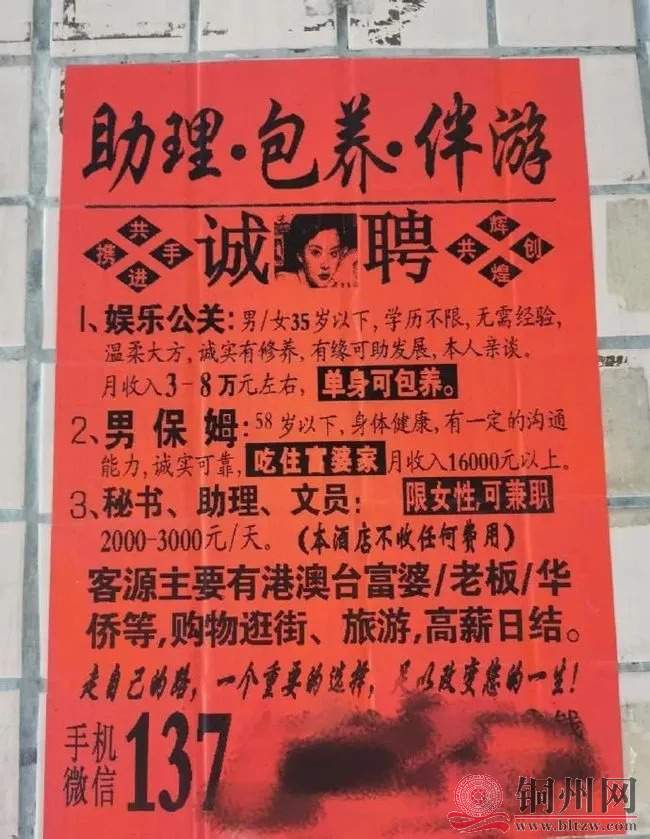 助理·包养·伴游
携手共进 诚聘 共创辉煌
1、娱乐公关:男/女35岁以下,学历不限,无需经验,
温柔大方,诚实有修养,有缘可助发展,本人亲谈。
月收入3-8万元左右,单身可包养。
2、男保姆:58岁以下,身体健康,有一定的沟通
能力,诚实可靠,吃住富婆家月收入16000元以上。
3、秘书、助理、文员:限女性,可兼职
2000-3000元/天。(本酒店不收任何费用)
客源主要有港澳台富婆/老板/华
侨等,购物逛街、旅游,高薪日结。
走自己的路,一个重要的选择,足以改变您的一生!
手机
微信137
铜州网
www.bltzw.com